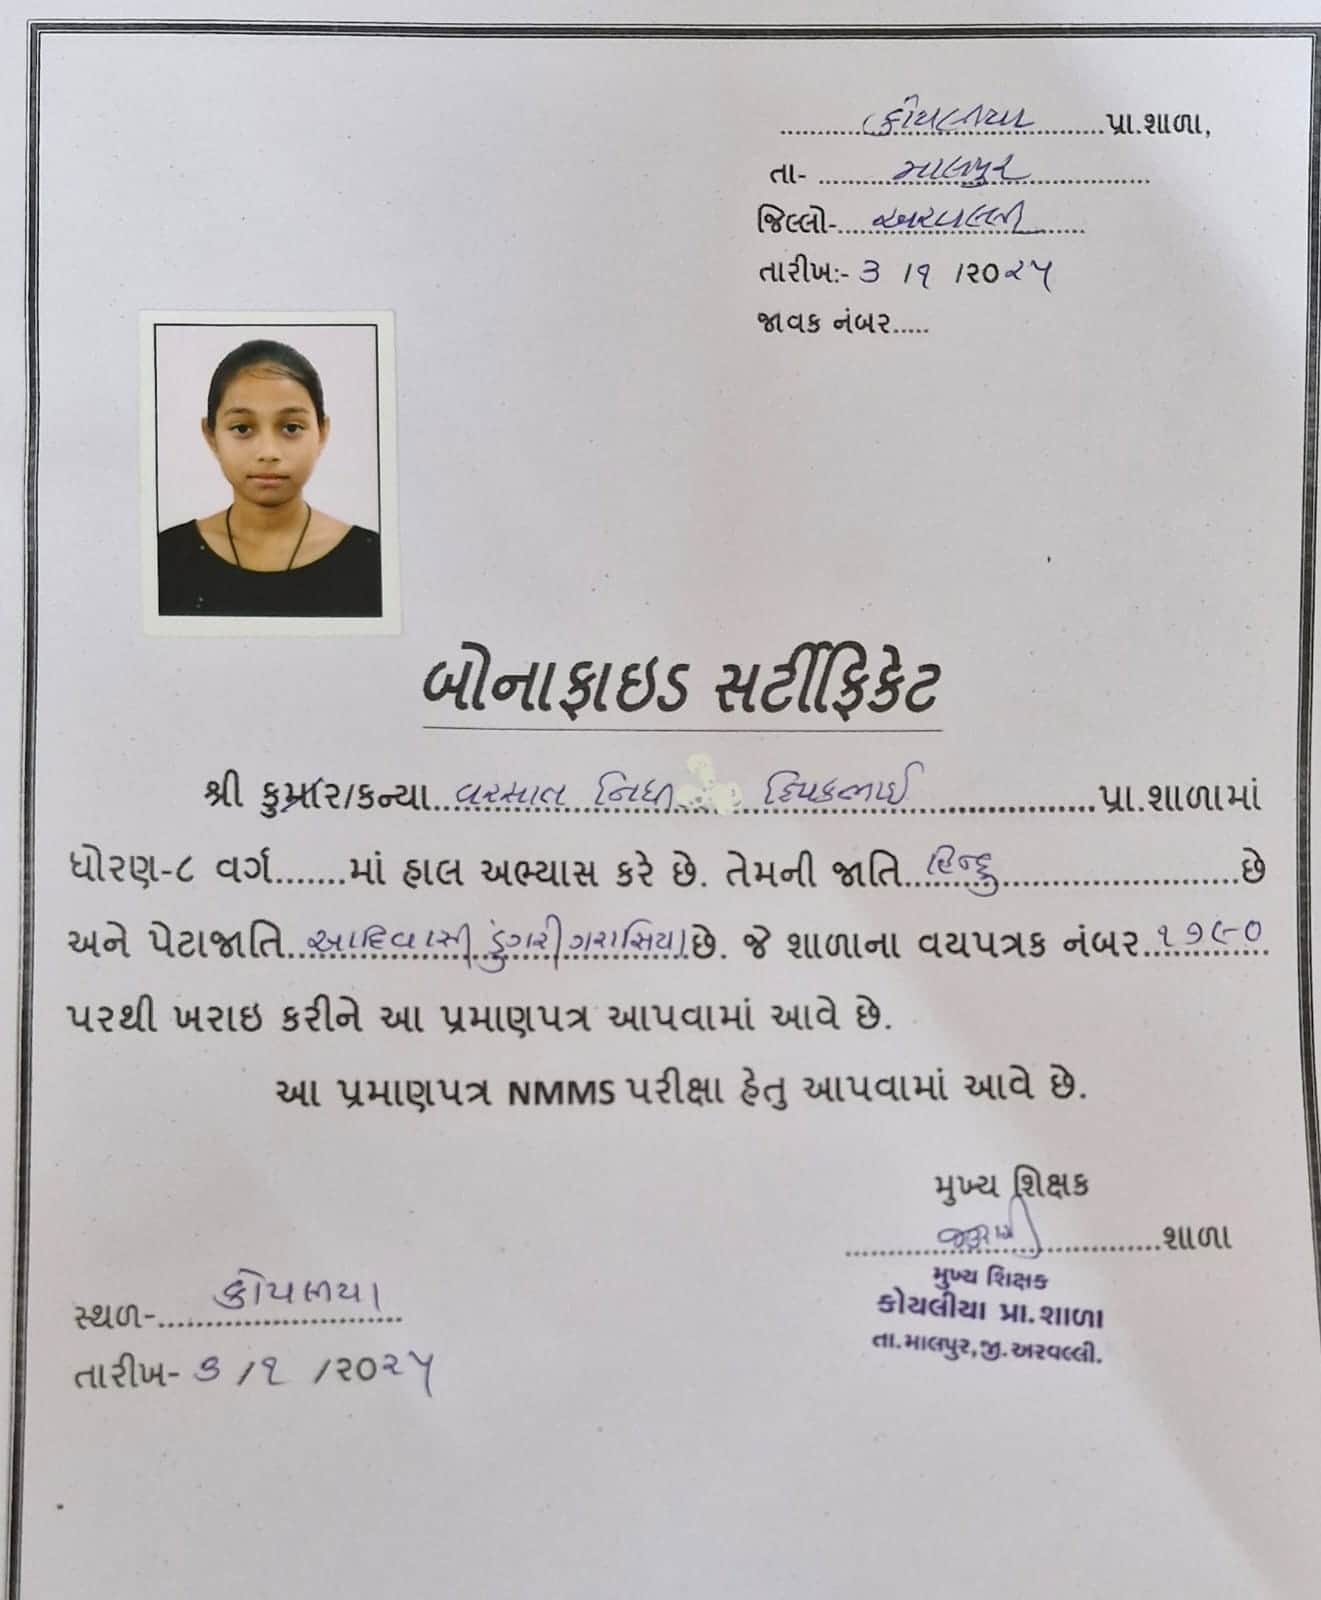 કોયલીયા પ્રા.શાળા,
તા- માલપુર
જિલ્લો- અરવલ્લી
તારીખ:- ૩ /૧ /૨૦૨૫
જાવક નંબર.....
બોનાફાઇડ સર્ટીફિકેટ
શ્રી કુમાર/કન્યા વરસાત નિધી દિપકભાઈ પ્રા.શાળામાં
ધોરણ-૮ વર્ગ.......માં હાલ અભ્યાસ કરે છે. તેમની જાતિ હિન્દુ છે
અને પેટાજાતિ આદિવાસી ડુંગરી ગરાસિયા છે. જે શાળાના વયપત્રક નંબર ૧૭૯૦
પરથી ખરાઇ કરીને આ પ્રમાણપત્ર આપવામાં આવે છે.
આ પ્રમાણપત્ર NMMS પરીક્ષા હેતુ આપવામાં આવે છે.
મુખ્ય શિક્ષક
શાળા
મુખ્ય શિક્ષક
કોયલીયા પ્રા.શાળા
તા.માલપુર,જી.અરવલ્લી.
સ્થળ- કોયલીયા
તારીખ- ૩ /૧ /૨૦૨૫